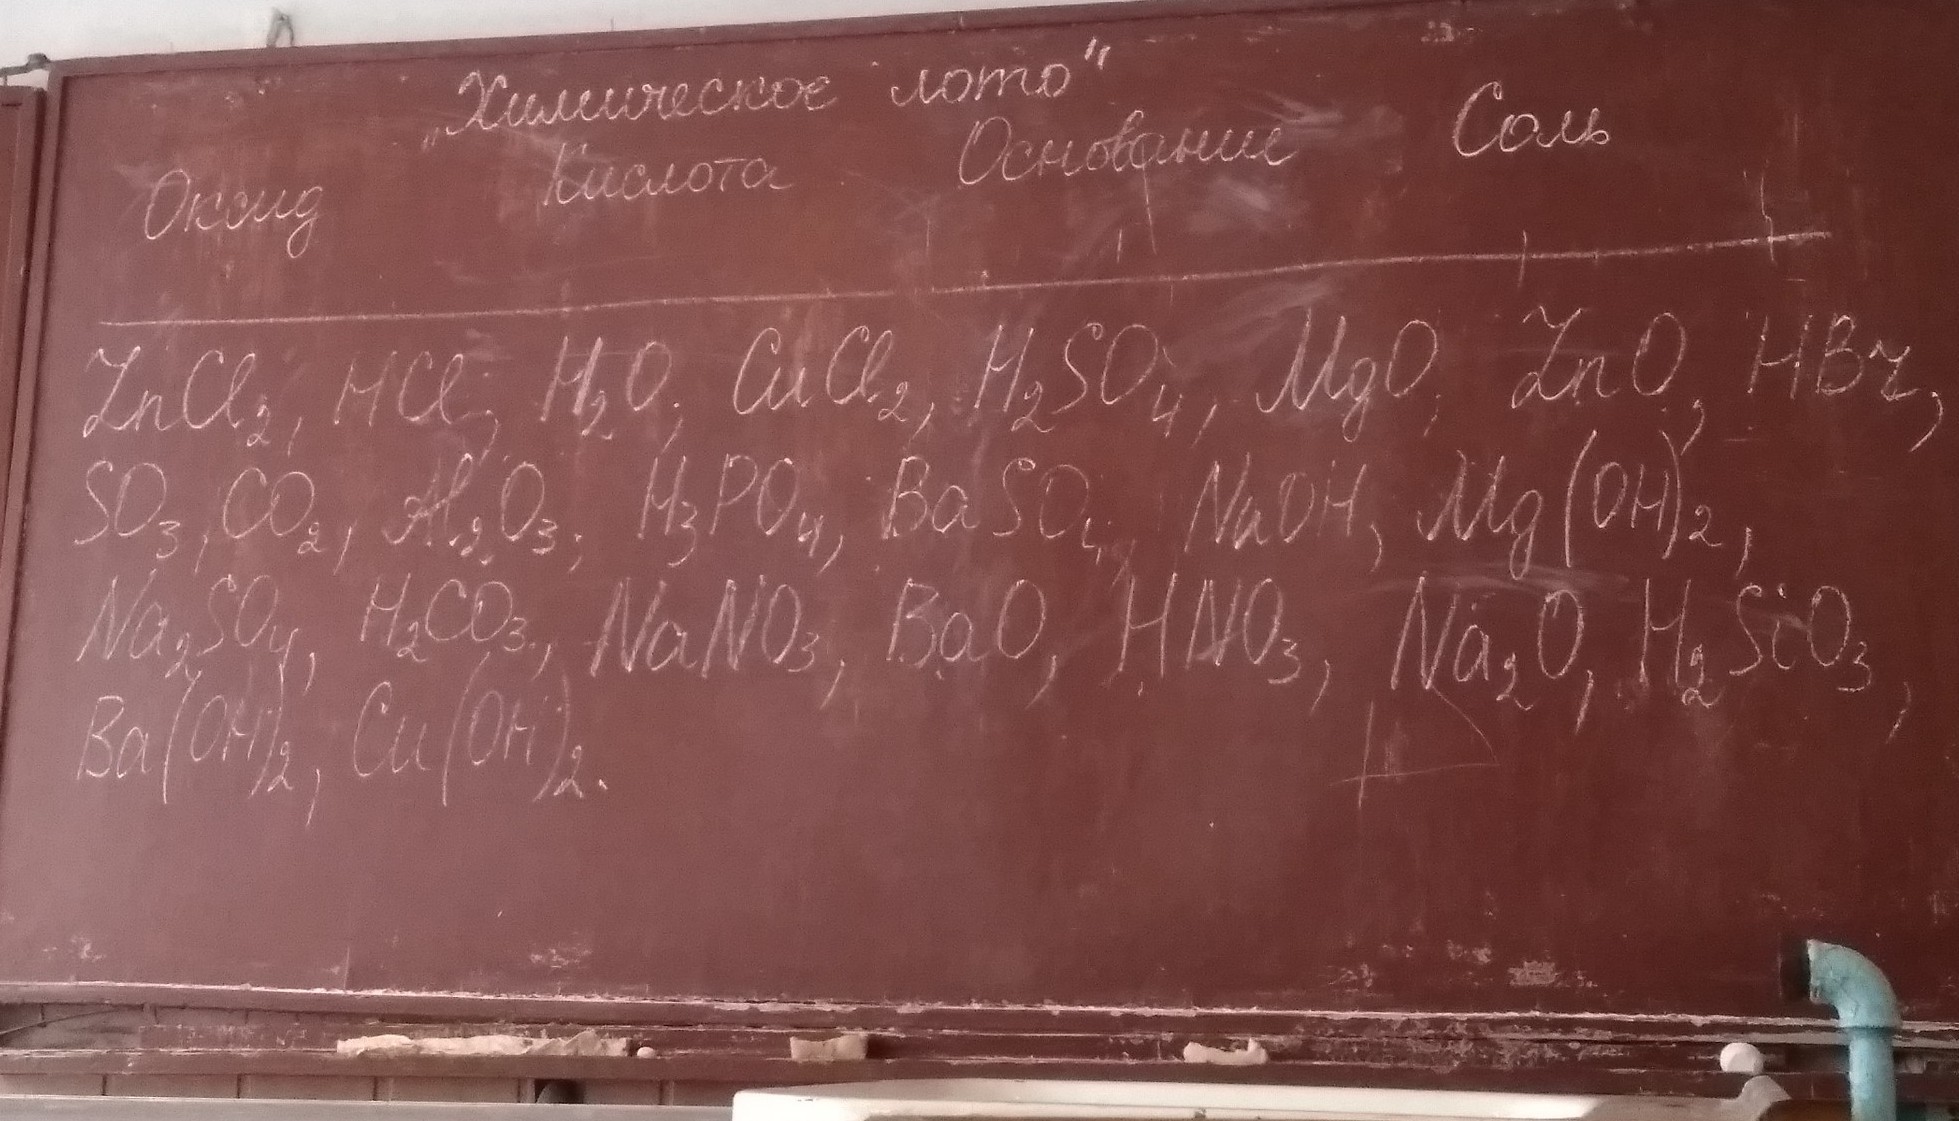 „Химическое лото"
Оксид Кислота Основание Соль
ZnCl₂, HCl, H₂O, CuCl₂, H₂SO₄, MgO, ZnO, HBr,
SO₃, CO₂, Al₂O₃, H₃PO₄, BaSO₄, NaOH, Mg(OH)₂,
Na₂SO₄, H₂CO₃, NaNO₃, BaO, HNO₃, Na₂O, H₂SiO₃,
Ba(OH)₂, Cu(OH)₂.